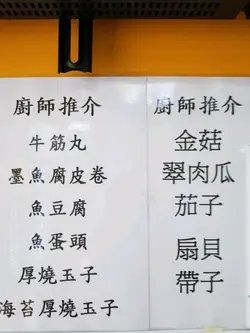 廚師推介
牛筋丸
墨魚腐皮卷
魚豆腐
魚蛋頭
厚燒玉子
海苔厚燒玉子
廚師推介
金菇
翠肉瓜
茄子
扇貝
帶子